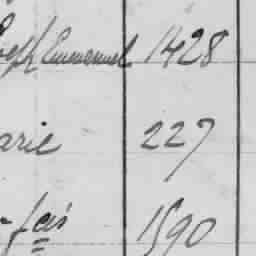 oseph Emmanuel 1428
arie 227
- fois 1590